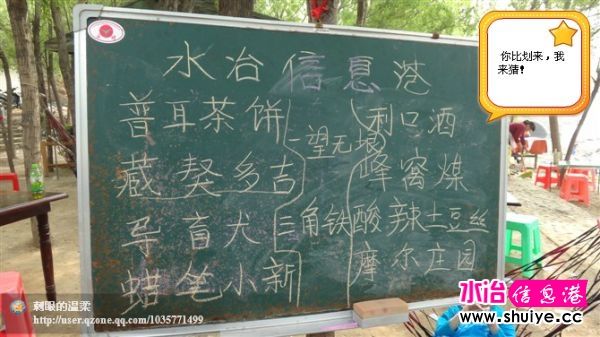 水冶信息港
普耳茶饼
藏獒多吉
导盲犬
蜡笔小新
一望无垠
三角铁
利口酒
蜂窝煤
酸辣土豆丝
摩尔庄园
你比划来，我
来猪！
刺眼的温柔
http://user.qzone.qq.com/1035771499
水冶信息港
www.shuiye.cc